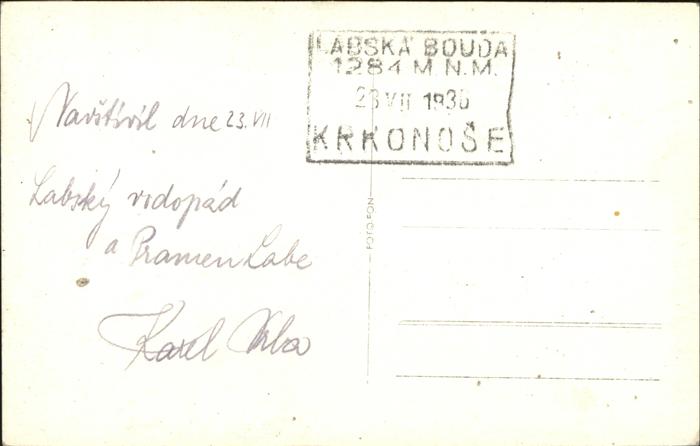 LABSKÁ BOUDA
1284 M N.M.
23 VII 1936
KRKONOŠE
Navštívil dne 23. VII
Labský vodopád
a Pramen Labe
Karel Vrba
FOTO-FON